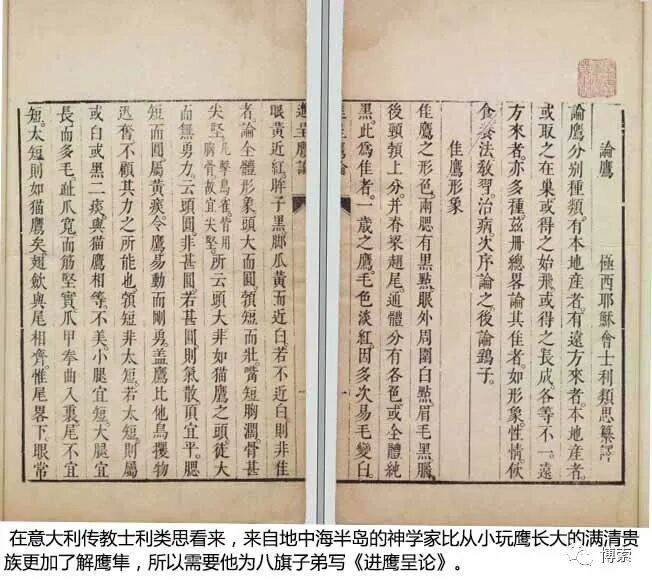 論鷹　極西耶穌會士利類思纂譯
論鷹分別種類。有本地產者。有遠方來者。本地產者。
或取之在巢。或得之始飛。或得之長成。各等不一。遠
方來者。亦多種。玆冊總畧論其佳者。如形象。性情。飲
食。養法。敎習。治病。次序論之。後論鷂子。
佳鷹形象
佳鷹之形色。兩腮有黑點。眼外周圍白點。眉毛黑。腦
後頸領上分。并脊梁翅尾。通體分有各色。或全體純
黑。此為佳者。一歲之鷹。毛色淡紅。因多次易毛變白。
進呈鷹論
眼黃近紅。眸子黑。腳瓜黃而近白。若不近白。則非佳
者。論全體形象。頭大而圓。領短而壯。嘴短胸濶。骨甚
尖堅。凡擊鳥雀。皆用胸骨。故宜尖堅。所云頭大。非如猫鷹之頭。徒大
而無勇力。云頭圓。非甚圓。若甚圓。則氣散。頂宜平。腮
短而圓。屬黃痰。令鷹易動而剛勇。蓋鷹比他鳥攫物
迅奮。不顧其力之所能也。領短。非太短。若太短。則屬
或白或黑二痰。與猫鷹相等。不美。小腿宜短。大腿宜
長而多毛。趾爪寬而筋堅實。爪甲拳曲入裏。尾不宜
短。太短則如猫鷹矣。翅歛與尾相齊。惟尾畧下。眼常
在意大利传教士利类思看来，来自地中海半岛的神学家比从小玩鹰长大的满清贵
族更加了解鹰隼，所以需要他为八旗子弟写《进鹰呈论》。
博索